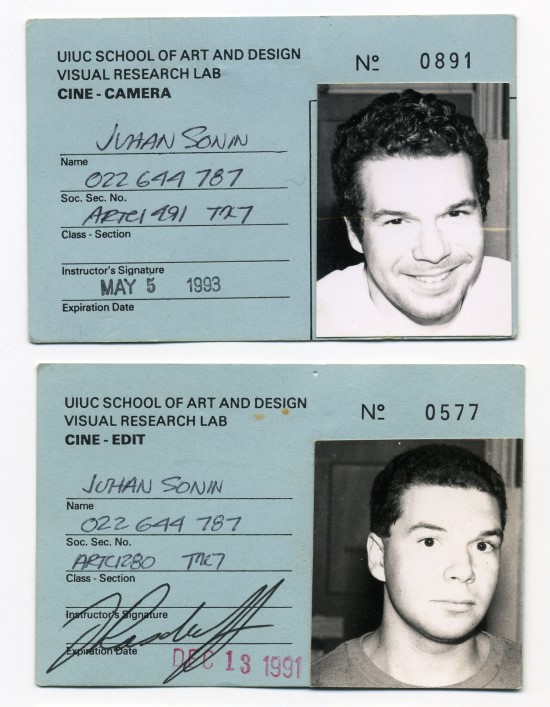 UIUC SCHOOL OF ART AND DESIGN
VISUAL RESEARCH LAB
CINE - CAMERA
Nº 0891
JUHAN SONIN
Name
022 644 787
Soc. Sec. No.
ARTC1491 TR7
Class - Section
Instructor's Signature
MAY 5 1993
Expiration Date
UIUC SCHOOL OF ART AND DESIGN
VISUAL RESEARCH LAB
CINE - EDIT
Nº 0577
JUHAN SONIN
Name
022 644 787
Soc. Sec. No.
ARTC1280
Class - Section
Instructor's Signature
Expiration Date
DEC 13 1991